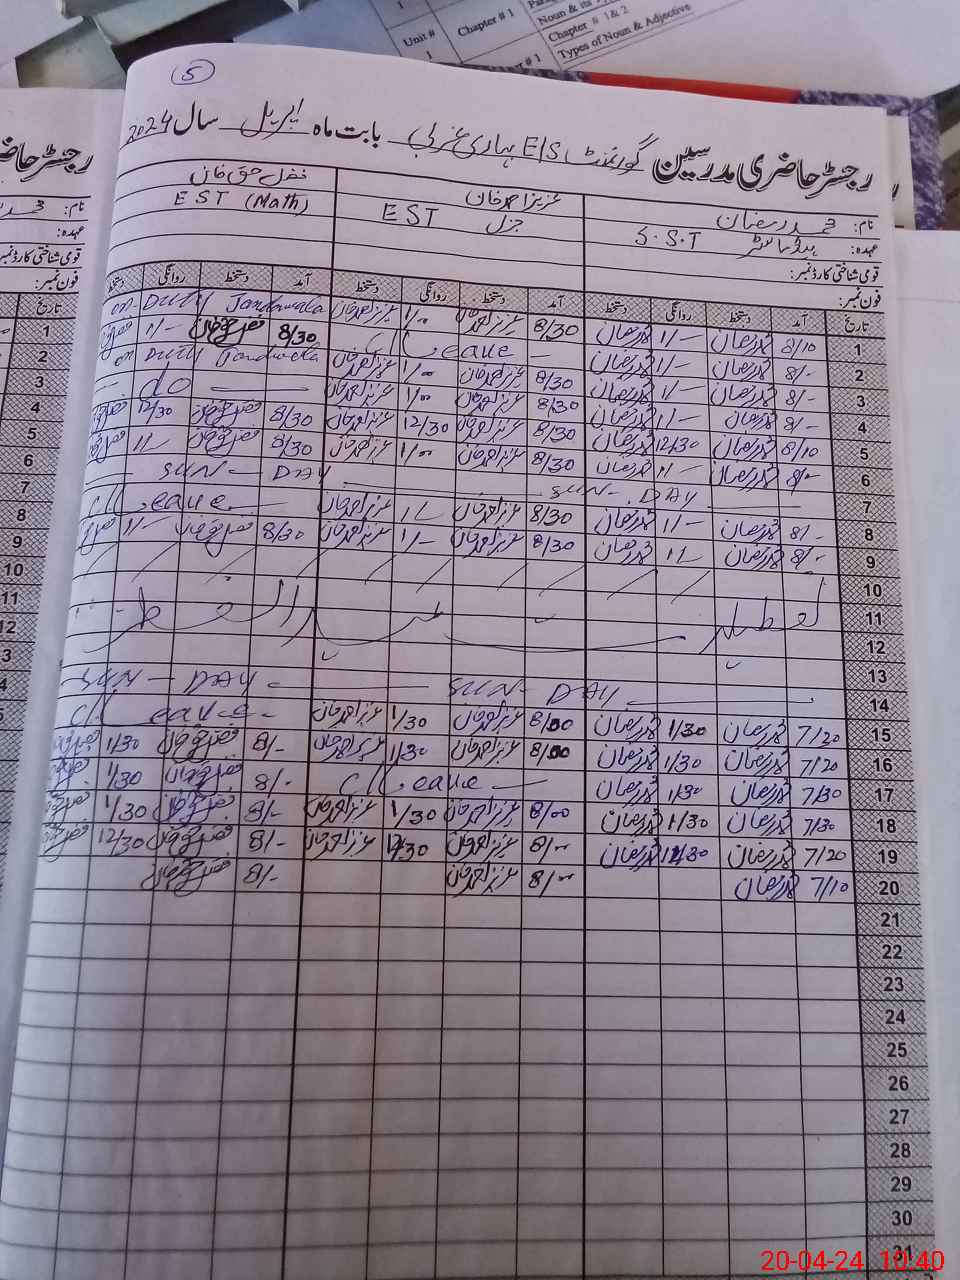 Unit # 1 Chapter # 1
Noun & its
Chapter # 1 & 2
Types of Noun & Adjective
5
رجسٹر حاضری مدرسین گورنمنٹ E/S بہاری غربی بابت ماہ اپریل سال 2024
نام: محمد رمضان عزیز احمد خان فضل حق خان
عہدہ: ہیڈ ماسٹر S.S.T جنرل EST EST (Math)
قومی شناختی کارڈ نمبر:
فون نمبر:
تاریخ آمد دستخط روانگی دستخط آمد دستخط روانگی دستخط آمد دستخط روانگی دستخط
1 8/10 محمد رمضان 1/- محمد رمضان 8/30 عزیز احمد خان 1/00 عزیز احمد خان on Duty Jandawala
2 8/- محمد رمضان 1/- محمد رمضان C/Leave 8/30 فضل حق خان 1/-
3 8/- محمد رمضان 1/- محمد رمضان 8/30 عزیز احمد خان 1/00 عزیز احمد خان on Duty Jandwala
4 8/- محمد رمضان 1/- محمد رمضان 8/30 عزیز احمد خان 1/00 عزیز احمد خان do
5 8/10 محمد رمضان 12/30 محمد رمضان 8/30 عزیز احمد خان 12/30 عزیز احمد خان 8/30 فضل حق خان 12/30
6 8/- محمد رمضان 1/- محمد رمضان 8/30 عزیز احمد خان 1/00 عزیز احمد خان 8/30 فضل حق خان 1/-
7 SUN - DAY SUN - DAY
8 8/- محمد رمضان 1/- محمد رمضان 8/30 عزیز احمد خان 1/- عزیز احمد خان C/Leave
9 8/- محمد رمضان 1/- محمد رمضان 8/30 عزیز احمد خان 1/- عزیز احمد خان 8/30 فضل حق خان 1/-
10
11 تعطیلات عید الفطر
12
13
14 SUN - DAY SUN - DAY
15 7/20 محمد رمضان 1/30 محمد رمضان 8/00 عزیز احمد خان 1/30 عزیز احمد خان C/Leave
16 7/20 محمد رمضان 1/30 محمد رمضان 8/00 عزیز احمد خان 1/30 عزیز احمد خان 8/- فضل حق خان 1/30
17 7/30 محمد رمضان 1/30 محمد رمضان C/Leave 8/- فضل حق خان 1/30
18 7/30 محمد رمضان 1/30 محمد رمضان 8/00 عزیز احمد خان 1/30 عزیز احمد خان 8/- فضل حق خان 1/30
19 7/20 محمد رمضان 12/30 محمد رمضان 8/00 عزیز احمد خان 12/30 عزیز احمد خان 8/- فضل حق خان 12/30
20 7/10 محمد رمضان 8/00 عزیز احمد خان 8/- فضل حق خان
21
22
23
24
25
26
27
28
29
30
31
20-04-24 10:40